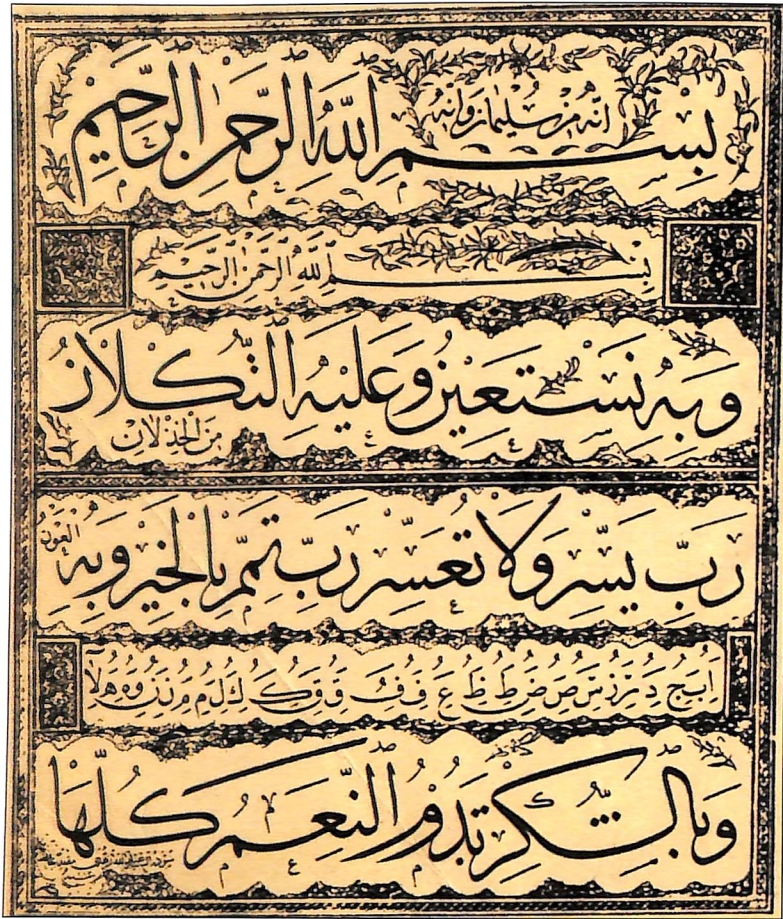 انه من سليمان وانه
بسم الله الرحمن الرحيم
بسم الله الرحمن الرحيم
وَبِهِ نَسْتَعِينُ وَعَلَيْهِ التُّكْلَانُ
مِنَ الْخِذْلَانِ
رَبِّ يَسِّرْ وَلَا تُعَسِّرْ رَبِّ تَمِّمْ بِالْخَيْرِ وَبِهِ
العون
وَبِالشُّكْرِ تَدُومُ النِّعَمُ كُلُّهَا